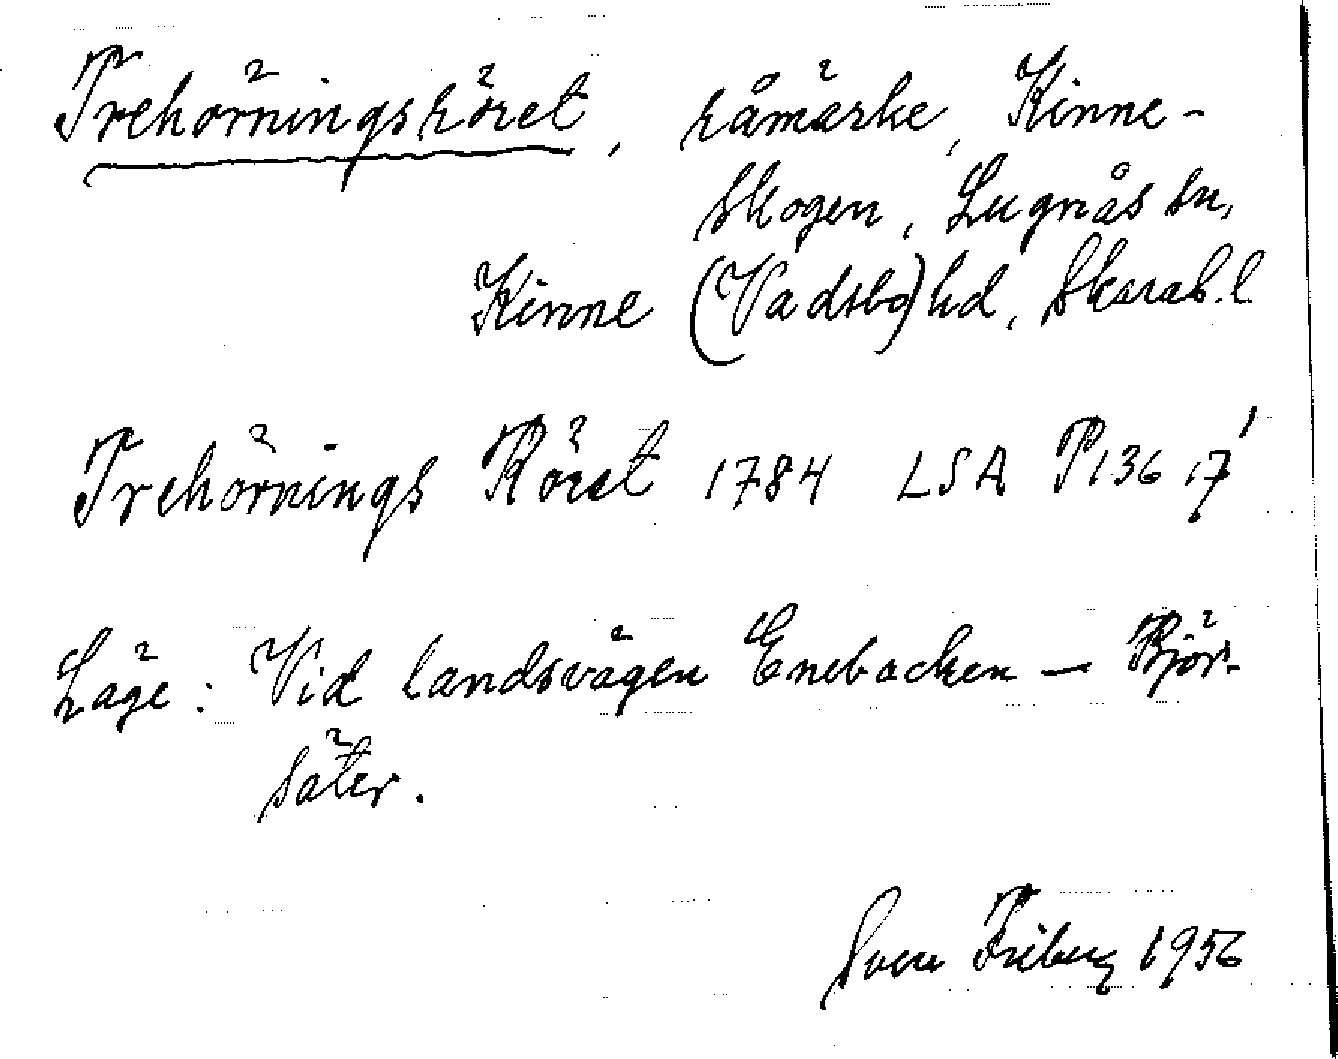 Trehörningsröret, råmärke, Kinne-
skogen, Lugnås sn,
Kinne (Vadsbo) hd, Skarab. l.
Trehörnings Röret 1784 LSA P136 17¹
Läge: Vid landsvägen Enebacken – Björ-
säter.
Sven Friberg 1956